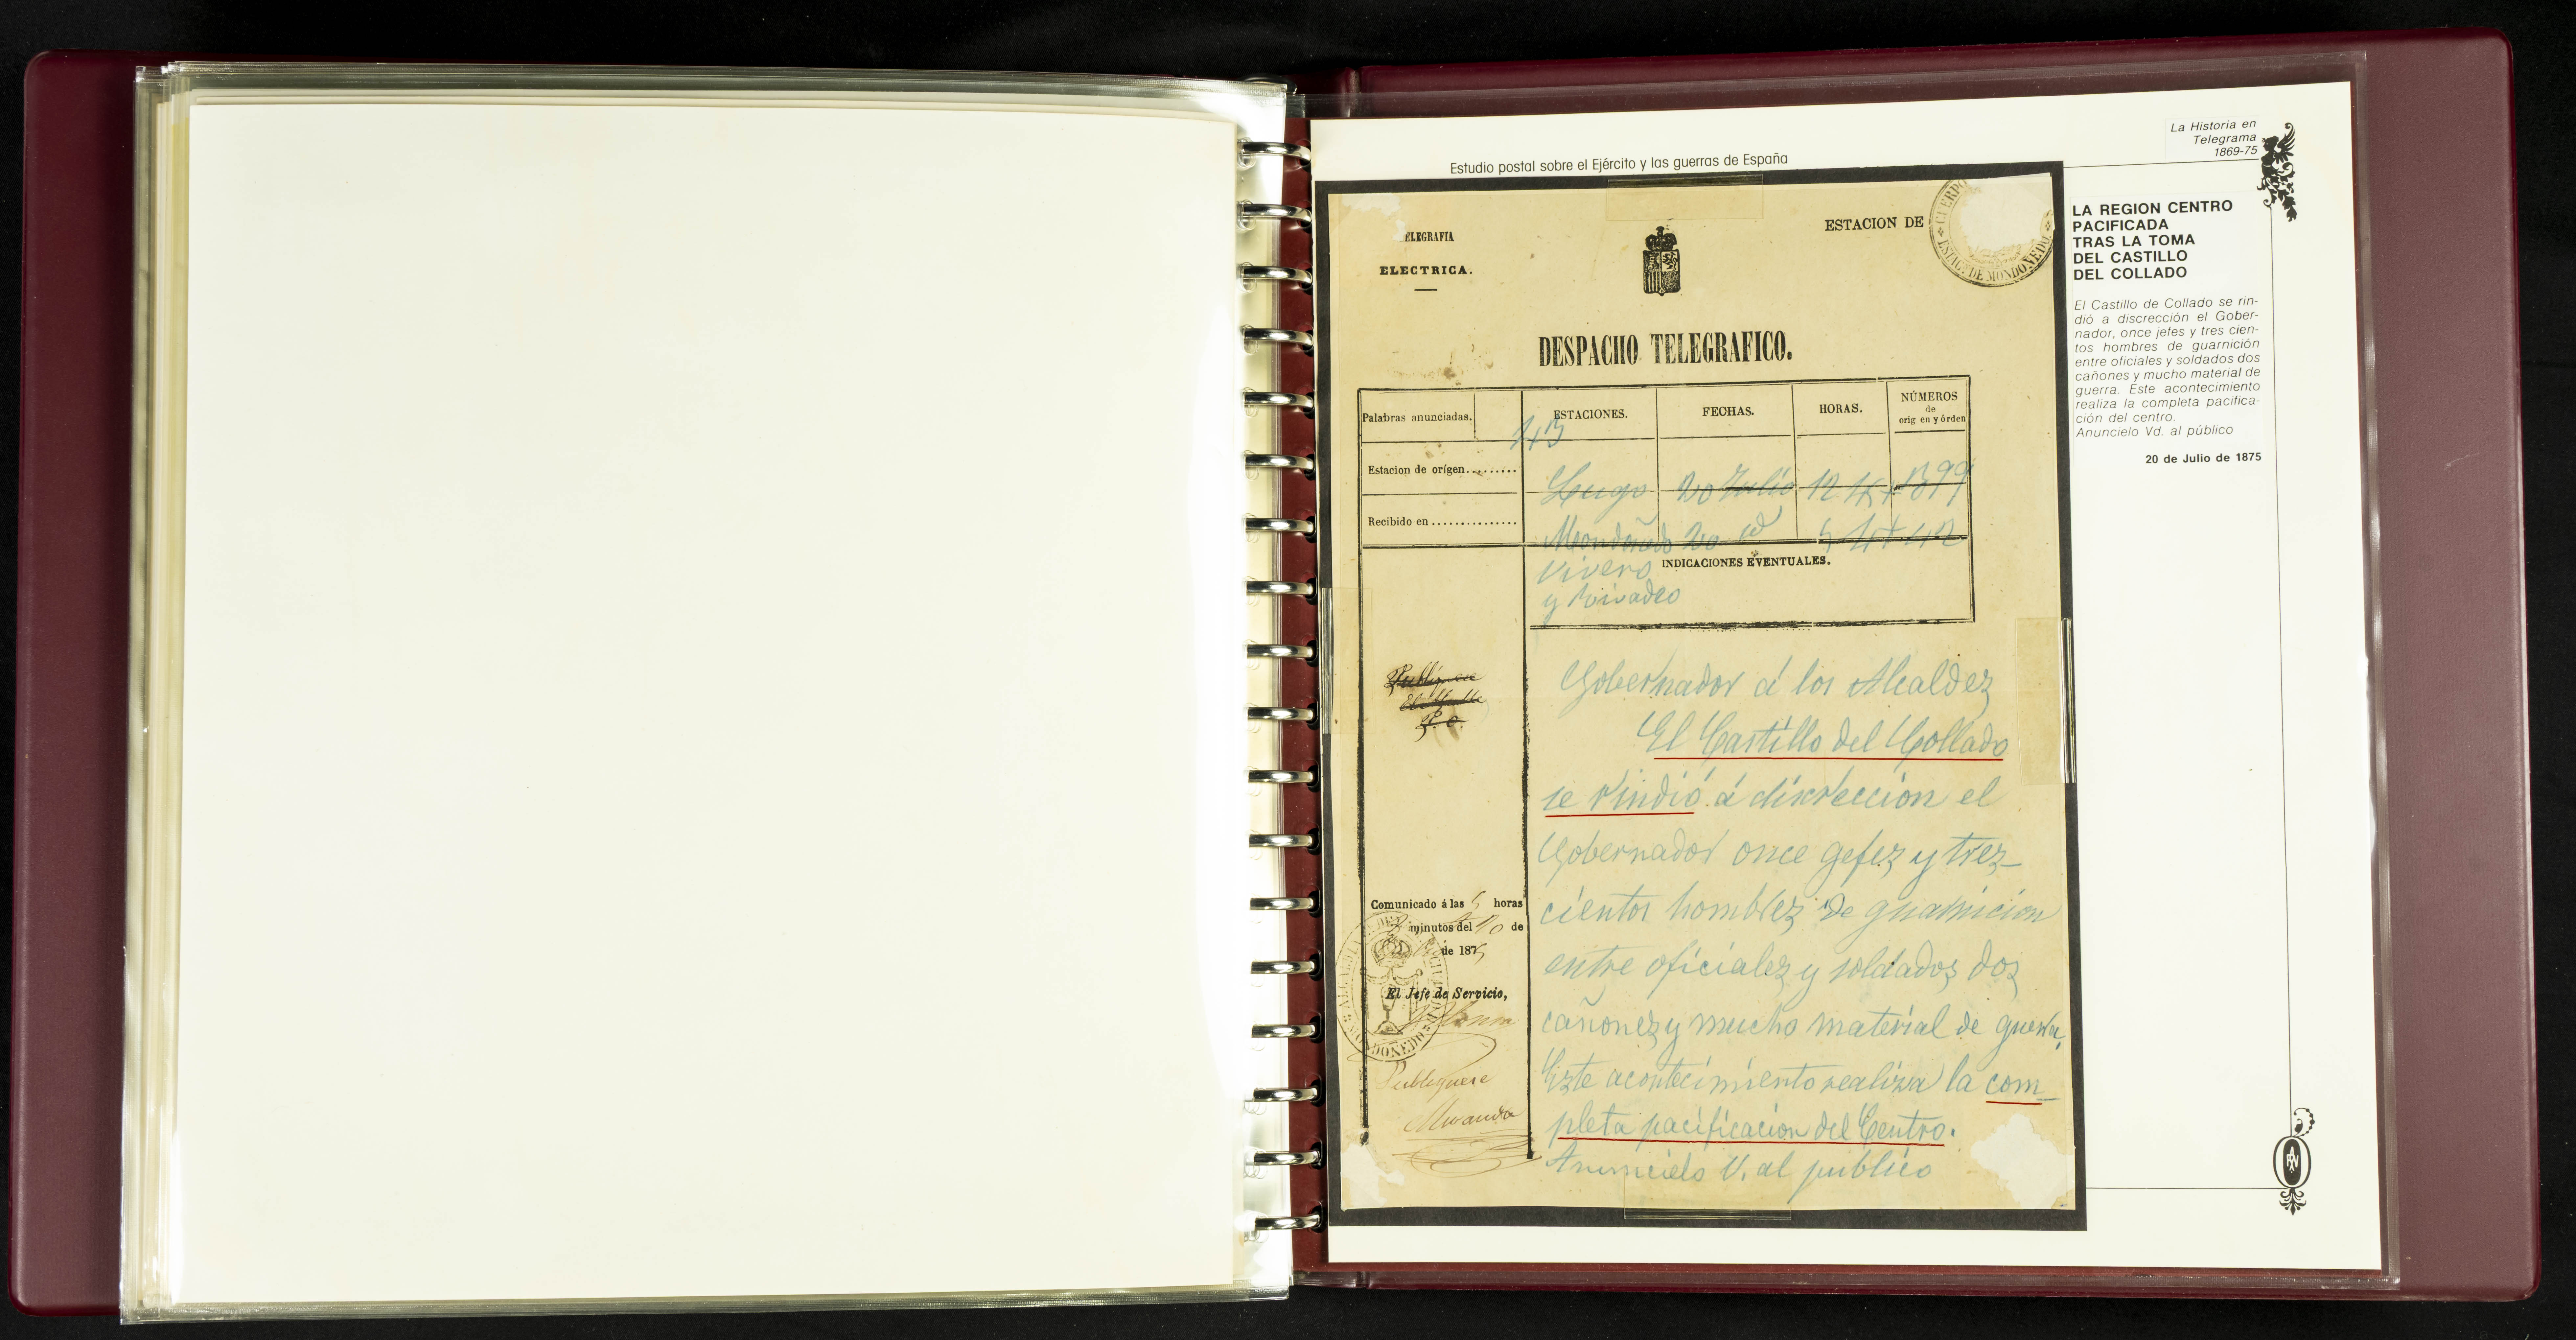 La Historia en
Telegrama
1869-75
Estudio postal sobre el Ejército y las guerras de España
LA REGION CENTRO
PACIFICADA
TRAS LA TOMA
DEL CASTILLO
DEL COLLADO
El Castillo de Collado se rin-
dió a discrección el Gober-
nador, once jefes y tres cien-
tos hombres de guarnición
entre oficiales y soldados dos
cañones y mucho material de
guerra. Este acontecimiento
realiza la completa pacifica-
ción del centro.
Anuncielo Vd. al público
20 de Julio de 1875
ELEGRAFIA
ELECTRICA.
ESTACION DE
CUERPO
ESTAC. DE MONDOÑEDO
DESPACHO TELEGRAFICO.
Palabras anunciadas. 43
ESTACIONES. FECHAS. HORAS. NÚMEROS
de
orig en y órden
Estacion de orígen......... Lugo 20 Julio 12 1399
Recibido en ............... Mondoñedo 20 id
INDICACIONES EVENTUALES.
Vivero
y Rivadeo
Publíquese
P. O.
Gobernador á los Alcaldez
El Castillo del Collado
se rindió á discreccion el
Gobernador once gefez y trez-
cientos hombrez de guarnicion
entre oficialez y soldados doz
cañonez y mucho material de guerra.
Ezte acontecimiento realiza la com-
pleta pacificacion del Centro.
Anuncielo V. al publico
Comunicado á las 5 horas
minutos del 20 de
de 1875
El Jefe de Servicio,
Publiquese
Miranda